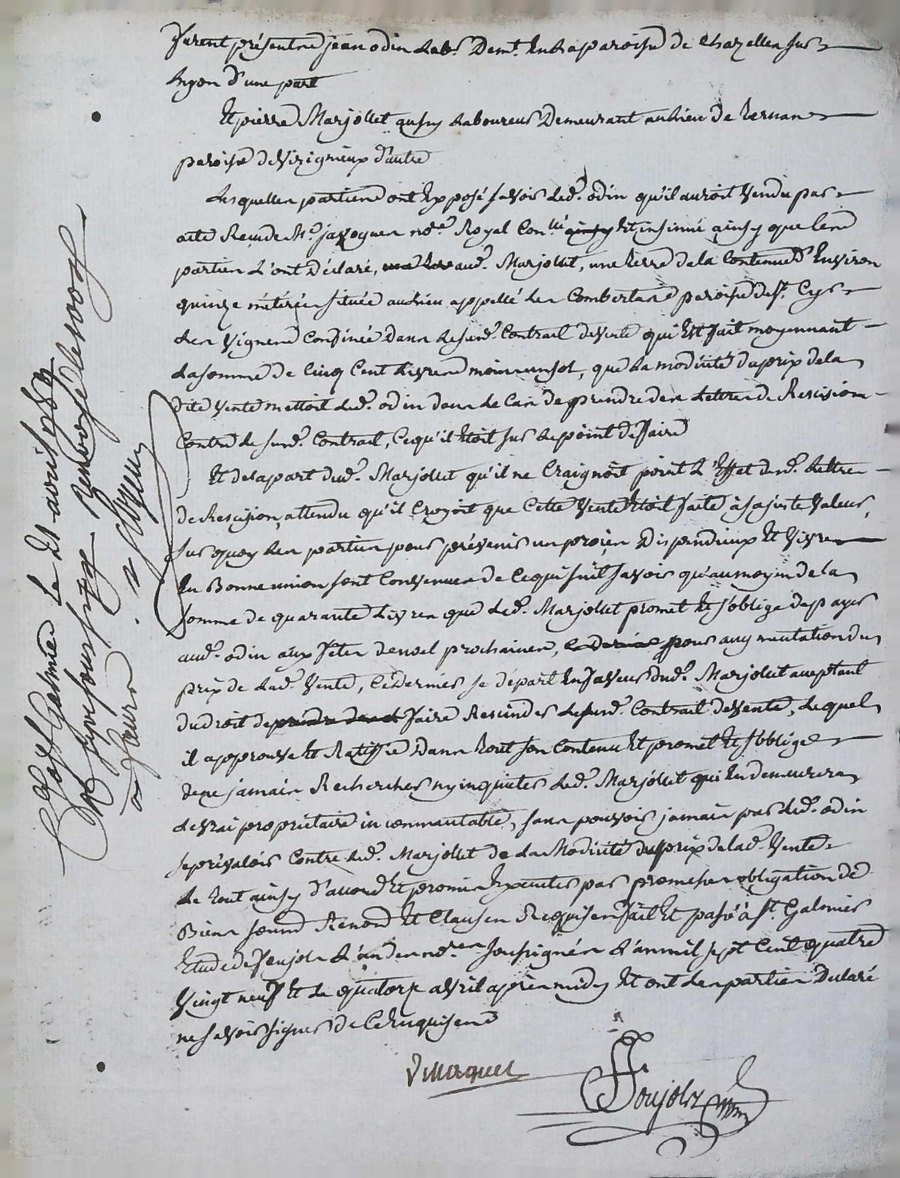 furent présentre jean odin Lab.r Dem.t En La paroisse de chazelles sur
Lyon d'une part
Et pierre Marjollet aussy Laboureur Demeurant au Lieu de
paroisse de Virigneux d'autre
Lesquelles partiene ont Exposé savoir Led.t odin qu'il auroit vendu par
acte Recu de M.e no.re Royal Et insinué ainsy que Lesd
partien L'ont Déclaré, aud.t Marjollet, une Terre de la Contenue d'Environ
quinze métérée située au Lieu appellé Les Combertane paroisse de St. Cyr
Les Vignene Confinée Dans Le susd.t Contrail de Vente qui Est fait moyennant
La somme de Cinq Cent Livrene moins un sol, que La modicité du prix de La
dite Vente mettoit Led.t odin dans Le Cas de prendre des Lettre de Rescision
Contre Le susd.t Contrail, Ce qu'il Etoit sur Le point de faire
Et de La part dud.t Marjollet qu'il ne Craignoit point L'Effet desd.t Lettre
de Rescision, attendu qu'il Croyoit que Cette Vente Etoit faite à sa juste Valeur,
sur quoy Les partien pour prévenir un procès Dispendieux Et Vivre
En Bonne union sont Convenuen de Ce qui suit savoir qu'au moyin de La
somme de quarante Livren que Led.t Marjollet promet Et s'oblige de payer
aud.t odin aux fêter de noel prochainen, pour augmentation du
prix de Lad.t Vente, Ce Dernier se départ En faveur dud.t Marjollet aceptant
du droit de faire Rescinder Le susd.t Contrail de Vente, Lequel
il approuve Et Ratiffie Dans Tout son Contenu Et promet Et s'obblige
de ne jamais Rechercher ny inquieter Led.t Marjollet qui En demeurera
Le vrai propriétaire incommutable, sans pouvoir jamais par Led.t odin
se prévaloir Contre Led.t Marjollet de La Modicité du prix de Lad.t Vente
Le Tout ainsy d'accord Et promis Exécuter par promesse obligation de
Biens Et Clausen Requisen fait Et passé à St. Galmier
Etude de feujols L'un des no.ren soussignén L'an mil sept Cent quatre
Vingt neuf Et Le quatorze avril après midy Et ont Les partien Déclaré
ne savoir signer de Ce Enquisene

St Galmier Le 21 avril 1789